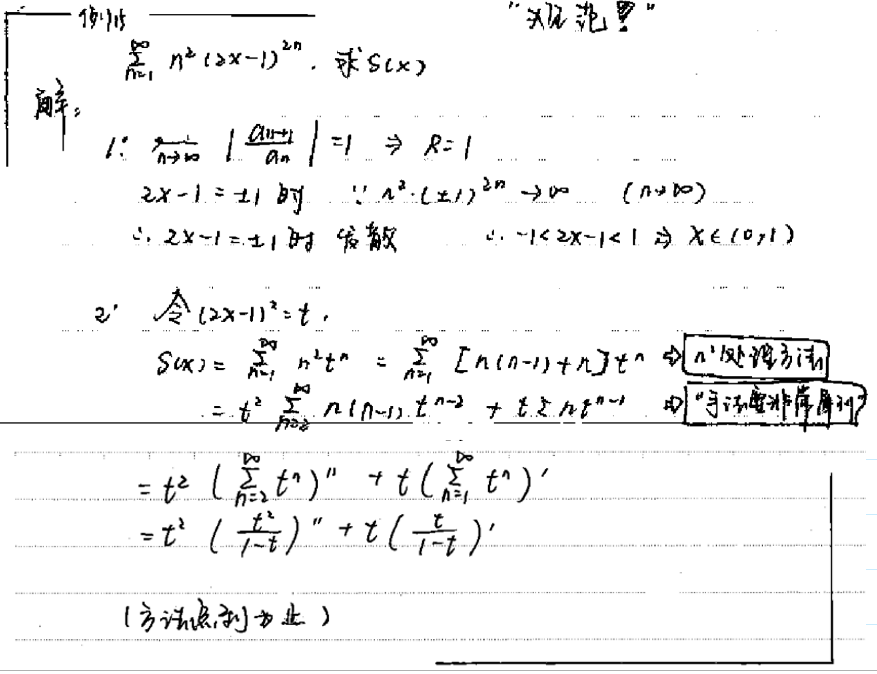 例15
$\sum_{n=1}^{\infty} n^2 (2x-1)^{2n}$. 求S(x)
解:
1° $\lim_{n\to\infty} \left| \frac{a_{n+1}}{a_n} \right| = 1 \Rightarrow R=1$
2x-1=±1 时 ∵ $n^2 \cdot (\pm 1)^{2n} \to \infty$ (n→∞)
∴ 2x-1=±1 时 发散 ∴ -1<2x-1<1 ⇒ x∈(0,1)
2° 令 $(2x-1)^2 = t$,
$S(x) = \sum_{n=1}^{\infty} n^2 t^n = \sum_{n=1}^{\infty} [n(n-1)+n] t^n$ ⇒ 处理方法
$= t^2 \sum_{n=2}^{\infty} n(n-1) t^{n-2} + t \sum n t^{n-1}$ ⇒
$= t^2 \left( \sum_{n=2}^{\infty} t^n \right)'' + t \left( \sum_{n=1}^{\infty} t^n \right)'$
$= t^2 \left( \frac{t^2}{1-t} \right)'' + t \left( \frac{t}{1-t} \right)'$
(方法点到为止)